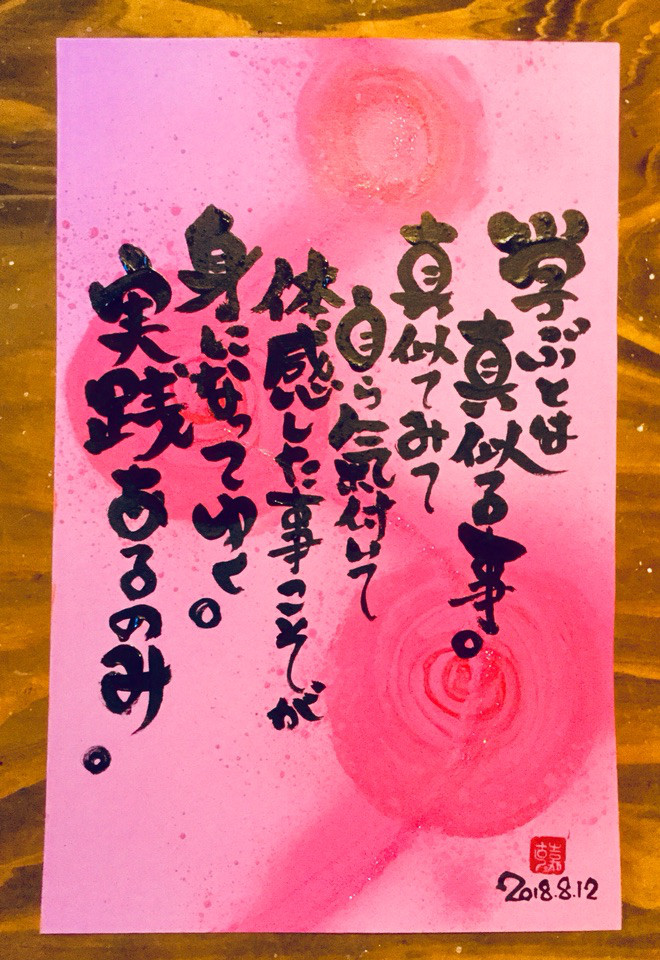 学ぶとは
真似る事。
真似てみて
自ら気付いて
体感した事こそが
身になってゆく。
実践あるのみ。
2018.8.12